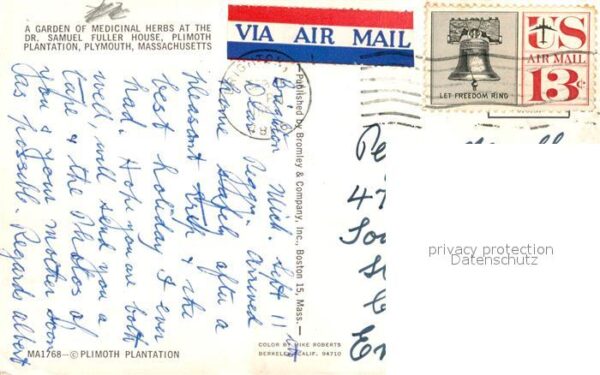 A GARDEN OF MEDICINAL HERBS AT THE
DR. SAMUEL FULLER HOUSE, PLIMOTH
PLANTATION, PLYMOUTH, MASSACHUSETTS
VIA AIR MAIL
US
AIR MAIL
13c
LET FREEDOM RING
Brighton Mich. Sept 11th
Dear Peggy. Arrived
home safely after a
pleasant trip & the
best holiday I ever
had. Hope you are both
well, will send you a
tape & the Photos of
you & your mother soon
as possible. Regards Albert
Published by Bromley & Company, Inc., Boston 15, Mass.
Pe
47
So
St
E
En
MA1768—© PLIMOTH PLANTATION
COLOR BY MIKE ROBERTS
BERKELEY, CALIF. 94710
privacy protection
Datenschutz